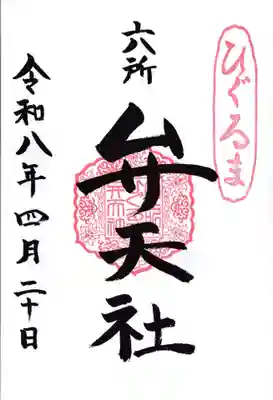 ひぐるま
六所
弁天社
令和八年四月二十日